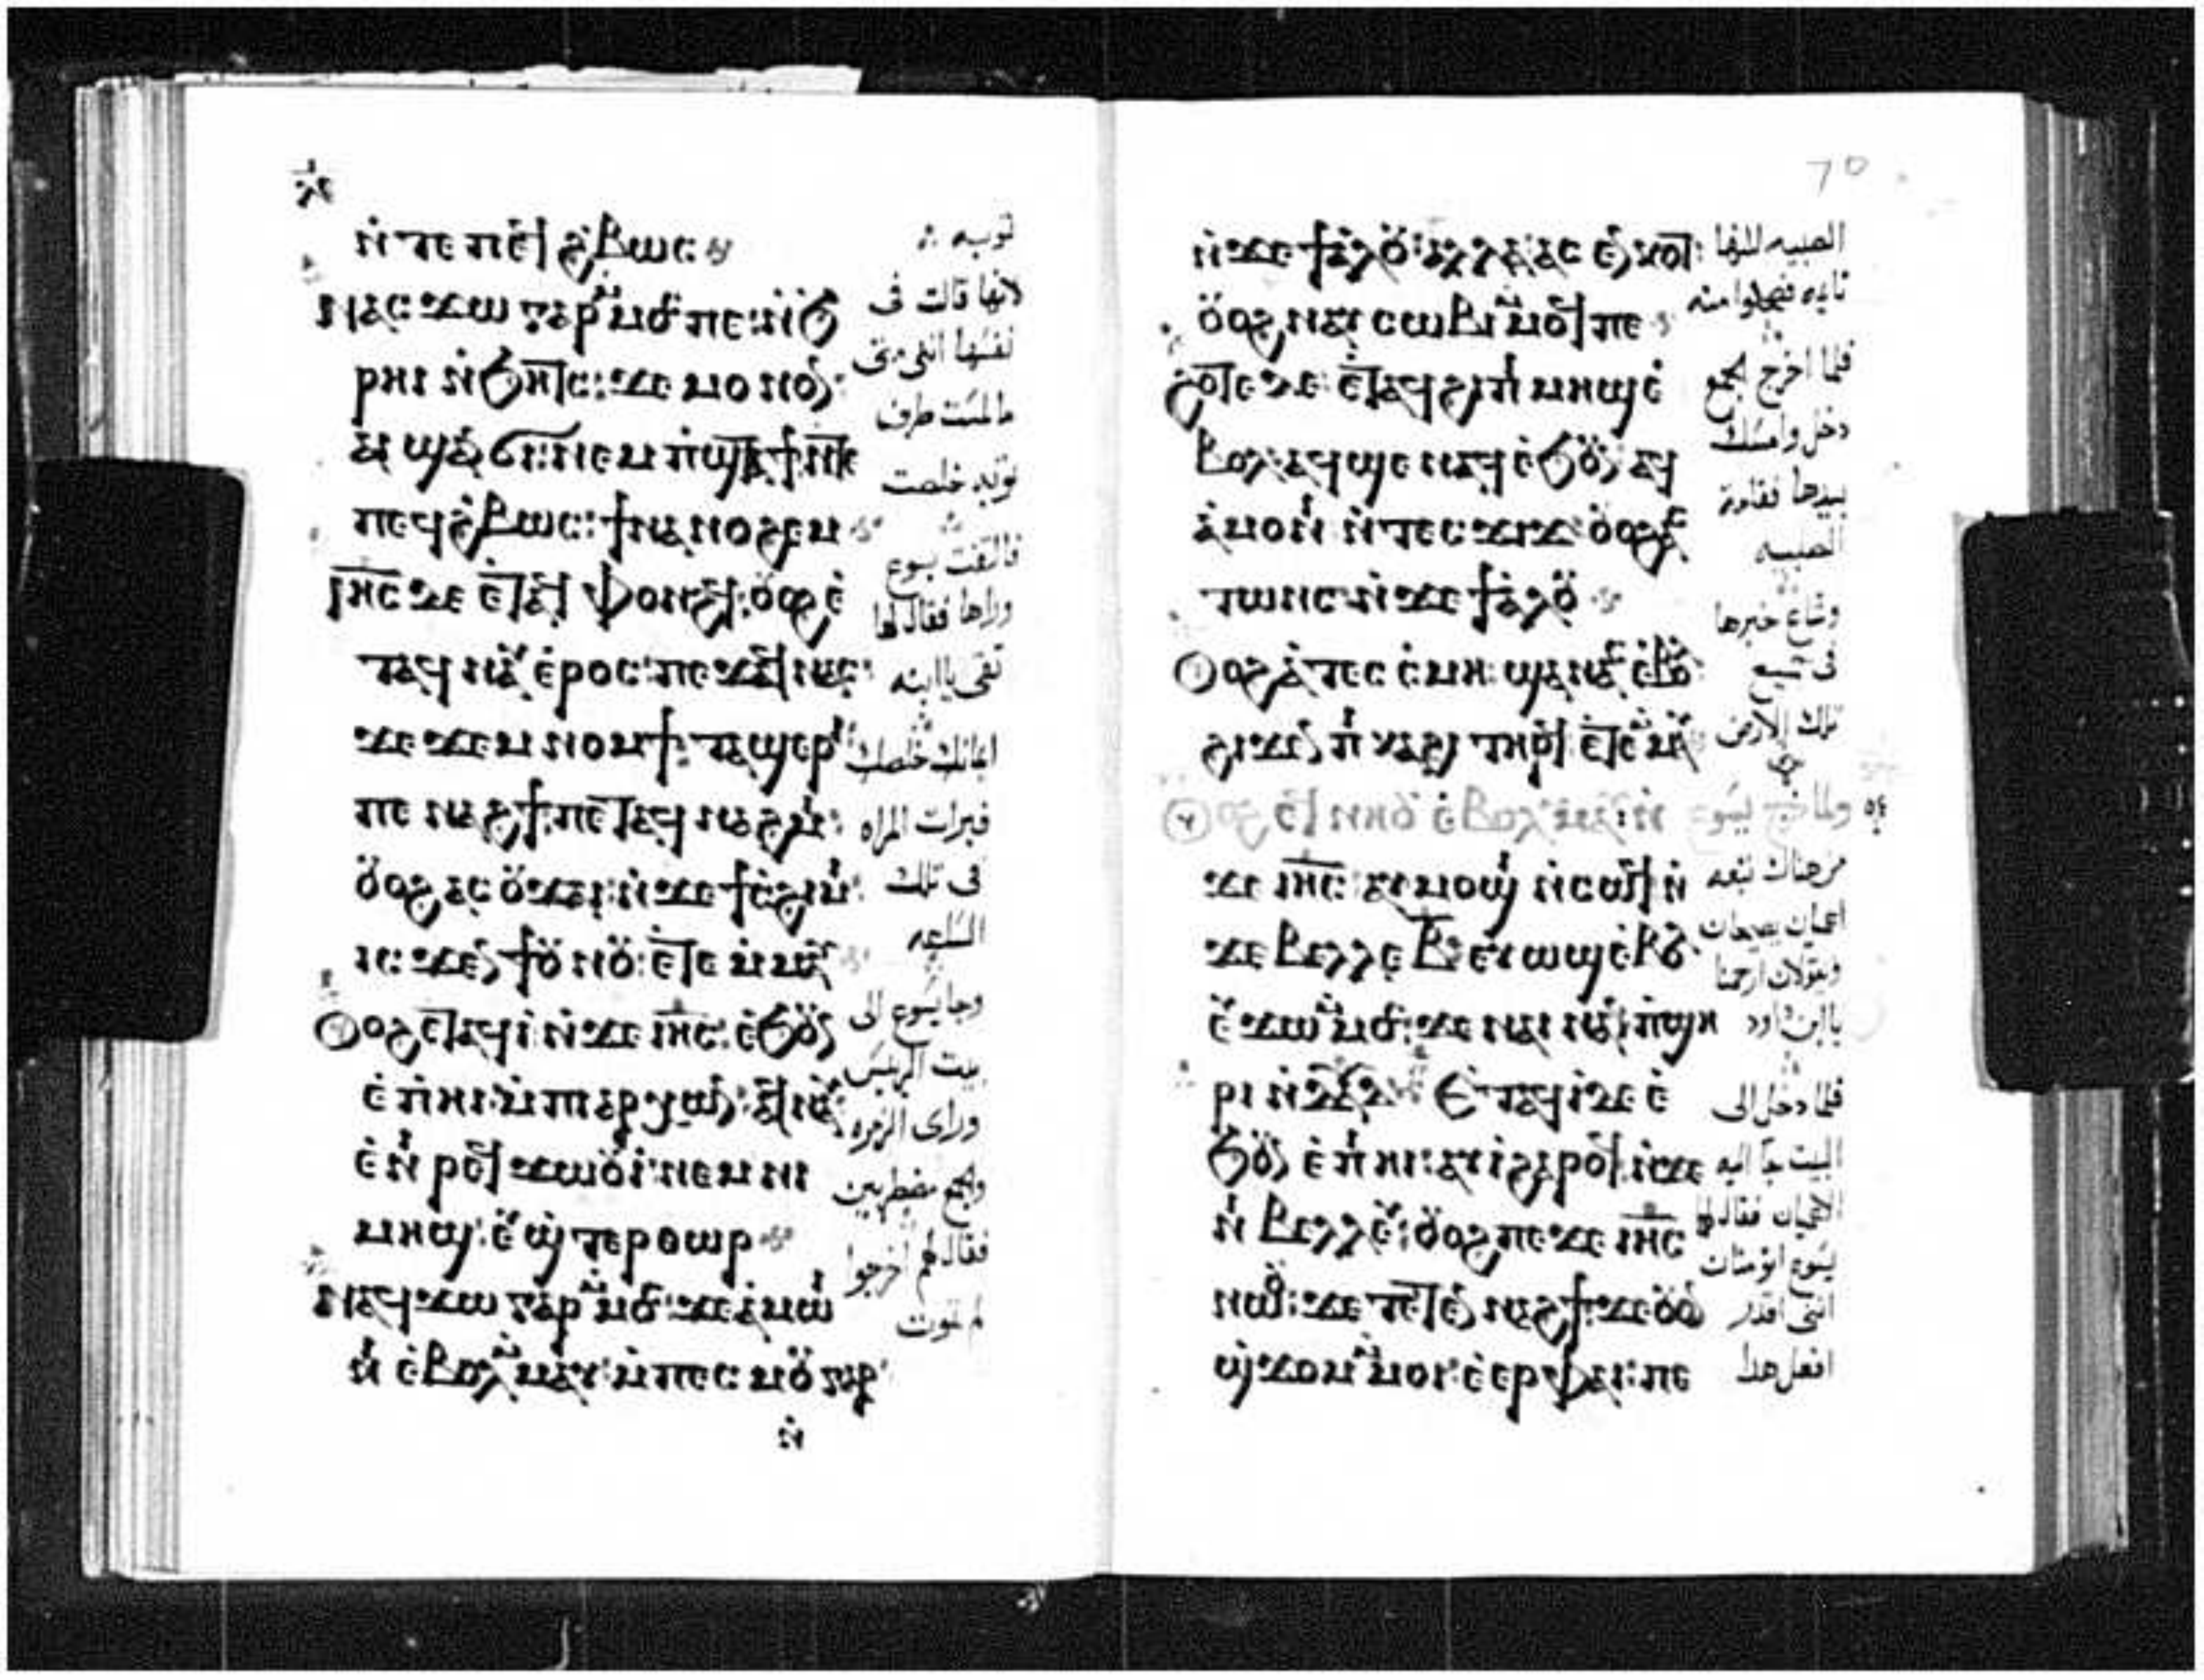 ⲛ̀ⲧⲉ ⲡⲉϥϩ̀ⲃⲱⲥ
ⲛⲁⲥϫⲱ ⲅⲁⲣ ⲙ̀ⲙⲟⲥ ⲡⲉ: ⲛ̀ϧ
ⲣⲏⲓ ⲛ̀ϧⲏⲧⲥ: ϫⲉ ⲙⲟⲛⲟⲛ:
ⲛⲉⲙ ⲡ̀ϣⲧⲁϯ ⲛ̀ⲧⲉ
ⲡⲉϥϩ̀ⲃⲱⲥ: ϯⲛⲁⲛⲟϩⲉⲙ
ⲓⲏ̅ⲥ̅ ⲇⲉ ⲉ̀ⲧⲁϥ ⲫⲟⲛϩϥ: ⲟⲩⲟϩ ⲉ̀
ⲧⲁϥⲛⲁⲩ ⲉ̀ⲣⲟⲥ: ⲡⲉϫⲁϥ ⲛⲁⲥ:
ϫⲉ ϫⲉⲙⲛⲟⲙϯ: ⲧⲁϣⲉⲣⲓ:
ⲡⲉⲛⲁϩϯ: ⲡⲉⲧⲁϥⲛⲁϩⲙⲓ:
ⲟⲩⲟϩ ⲁⲥⲟⲩϫⲁⲓ: ⲛ̀ϫⲉ ϯⲥ̀ϩⲓⲙⲓ:
ⲓⲥϫⲉⲛ ϯⲟⲩⲛⲟⲩ: ⲉ̀ⲧⲉ ⲙ̀ⲙⲁⲩ
ⲟⲩⲟϩ ⲉⲧⲁϥⲓ̀: ⲛ̀ϫⲉ ⲓⲏ̅ⲥ̅: ⲉ̀ϧⲟⲩⲛ
ⲉ̀ⲡ̀ⲏⲓ: ⲙ̀ⲡⲓⲁⲣⲭⲱⲛ: ⲁϥⲛⲁⲩ:
ⲉ̀ⲛⲓⲣⲉϥϫⲱⲟⲩⲓ: ⲛⲉⲙ ⲛⲓ
ⲙⲏϣ: ⲉⲩϣ̀ⲧⲉⲣⲑⲱⲣ
ⲛⲁϥϫⲱ ⲅⲁⲣ ⲙ̀ⲙⲟⲥ: ϫⲉ ⲁ̀ⲙⲱⲓ
ⲛⲓ ⲉ̀ⲃⲟⲗ ⲙ̀ⲙⲁⲩ: ⲙ̀ⲡⲉⲥⲙⲟⲩ ⲅⲁⲣ:
ⲛ̀
ثوبه
لانها قالت فى
نفسها اننى متى
ما لمست طرف
ثوبه خلصت
فالتفت يسوع
وراها فقال لها
ثقى يا ابنه
ايمانك خلصك
فبرات المراه
فى تلك
الساعه
وجا يسوع الى
بيت الرييس
وراى الزمره
والجمع مضطربين
فقال لهم اخرجوا
لم تموت
70
ⲛ̀ϫⲉ ϯⲁ̀ⲗⲟⲩ: ⲁⲗⲗⲁ ⲁⲥⲉⲛⲕⲟⲧ:
ⲟⲩⲟϩ ⲛⲁⲩⲥⲱⲃⲓ ⲙ̀ⲙⲟϥ ⲡⲉ
ϩⲟⲧⲉ ⲇⲉ: ⲉ̀ⲧⲁϥϩⲓⲡⲓⲙⲏϣ ⲉ̀
ⲃⲟⲗ: ⲁϥϣⲉ ⲛⲁϥ ⲉ̀ϧⲟⲩⲛ: ⲁϥ
ⲁ̀ⲙⲟⲛⲓ ⲛ̀ⲧⲉⲥϫⲓϫ: ⲟⲩⲟϩ ⲁⲥ
ⲧⲱⲛⲥ ⲛ̀ϫⲉ ϯⲁ̀ⲗⲟⲩ
ϩⲓϫⲉⲛ ⲡⲓⲕⲁϩⲓ ⲧⲏⲣϥ: ⲉ̀ⲧⲉ ⲙ̀ⲙⲁⲩ
ϫⲉ ⲓⲏ̅ⲥ̅: ⲁⲩⲙⲟϣⲓ ⲛ̀ⲥⲱϥ ⲛ̀
ϫⲉ ⲃⲉⲗⲗⲉ ⲃ̅: ⲉⲩⲱϣ ⲉ̀ⲃⲟⲗ:
ⲉⲩϫⲱ ⲙ̀ⲙⲟⲥ: ϫⲉ ⲛⲁⲓ ⲛⲁⲛ: ⲡ̀ϣⲏ
ⲣⲓ ⲛ̀ⲇⲁⲇ ⲉ̀ⲧⲁϥⲓ̀ ⲇⲉ ⲉ̀
ϧⲟⲩⲛ ⲉ̀ⲡⲓⲏⲓ: ⲁⲩⲓ̀ ϩⲁⲣⲟϥ: ⲛ̀ϫⲉ
ⲛⲓⲃⲉⲗⲗⲉⲩ: ⲟⲩⲟϩ ⲡⲉϫⲉ ⲓⲏ̅ⲥ̅
ⲛⲱⲟⲩ: ϫⲉ ⲧⲉⲧⲉⲛⲛⲁϩϯ: ϫⲉ ⲟⲩⲟⲛ
ϣ̀ϫⲟⲙ ⲙ̀ⲙⲟⲓ: ⲉ̀ⲉⲣ ⲫⲁⲓ: ⲡⲉ
الصبيه لكنها
نايمه فضحكوا منه
فلما اخرج الجمع
دخل وامسك
بيدها فقامت
الصبيه
وشاع خبرها
فى جميع
تلك الارض
من هناك تبعه
اعميان يصيحان
ويقولان ارحمنا
يا ابن داود
فلما دخل الى
البيت جا اليه
الاعميان فقال لهما
يسوع اتومنان
اننى اقدر
افعل هذا